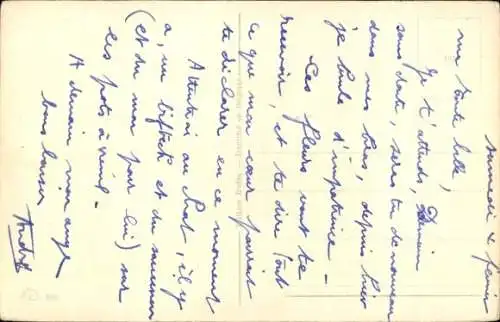 samedi 2 janv
ma toute belle,
Je t'attends, Demain
sans doute, seras tu de nouveau
dans mes bras, depuis hier
je brûle d'impatience -
Ces fleurs vont te
recevoir, et te dire tout
ce que mon cœur pourrait
te déclarer en ce moment
Attention au Chat, il y
a, un bifteck et du mou
(et du mou pour lui) sur
les pots à
A demain mon ange
bons baisers
André